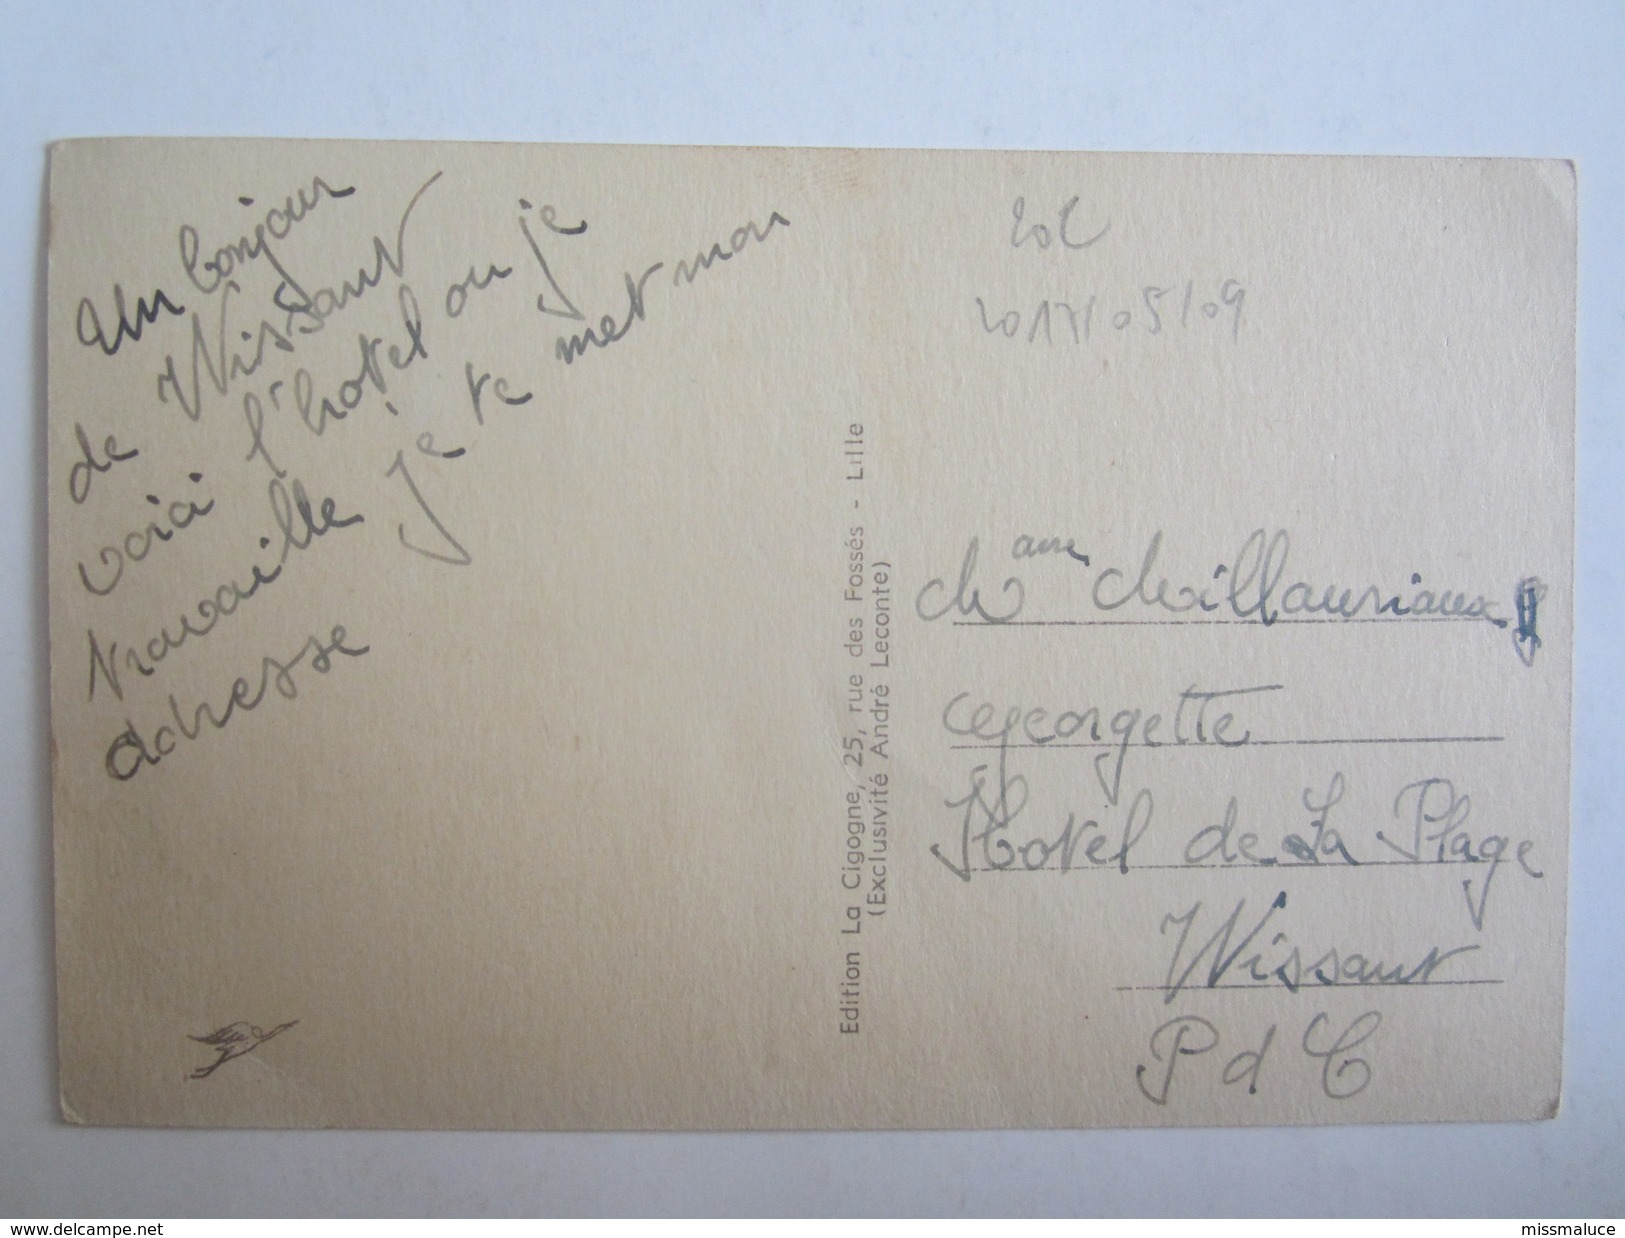 Un bonjour
de Wissant
voici l'hotel ou je
travaille je te met mon
adresse
Edition La Cigogne, 25, rue des Fossés - Lille
(Exclusivité André Leconte)
2017/05/09
Mame
Georgette
Hotel de La Plage
Wissant
P d C
www.delcampe.net
missmaluce